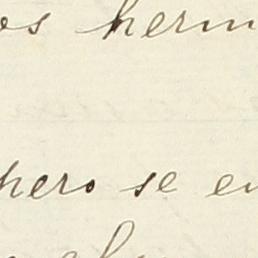 os herm
pero se en